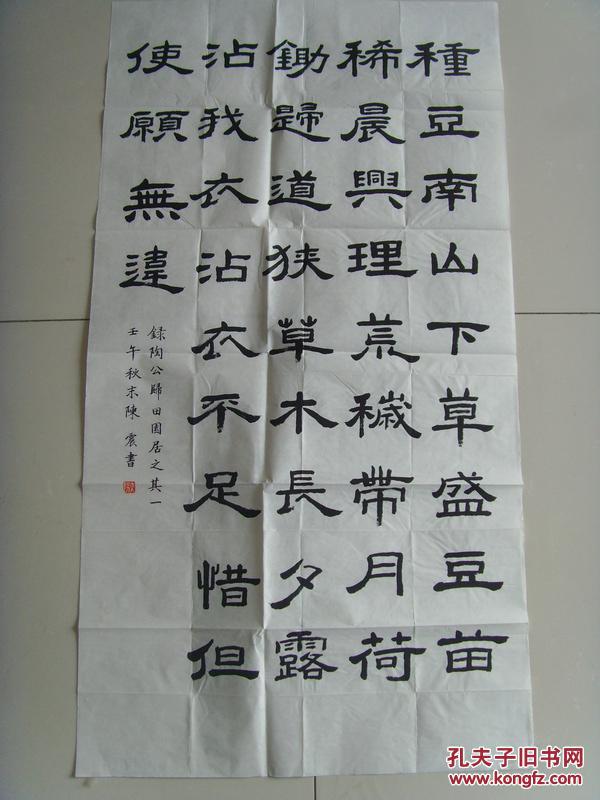 種豆南山下草盛豆苗
稀晨興理荒穢帶月荷
鋤歸道狹草木長夕露
沾我衣沾衣不足惜但
使願無違
録陶公歸田園居之其一
壬午秋末陳震書
孔夫子旧书网
www.kongfz.com